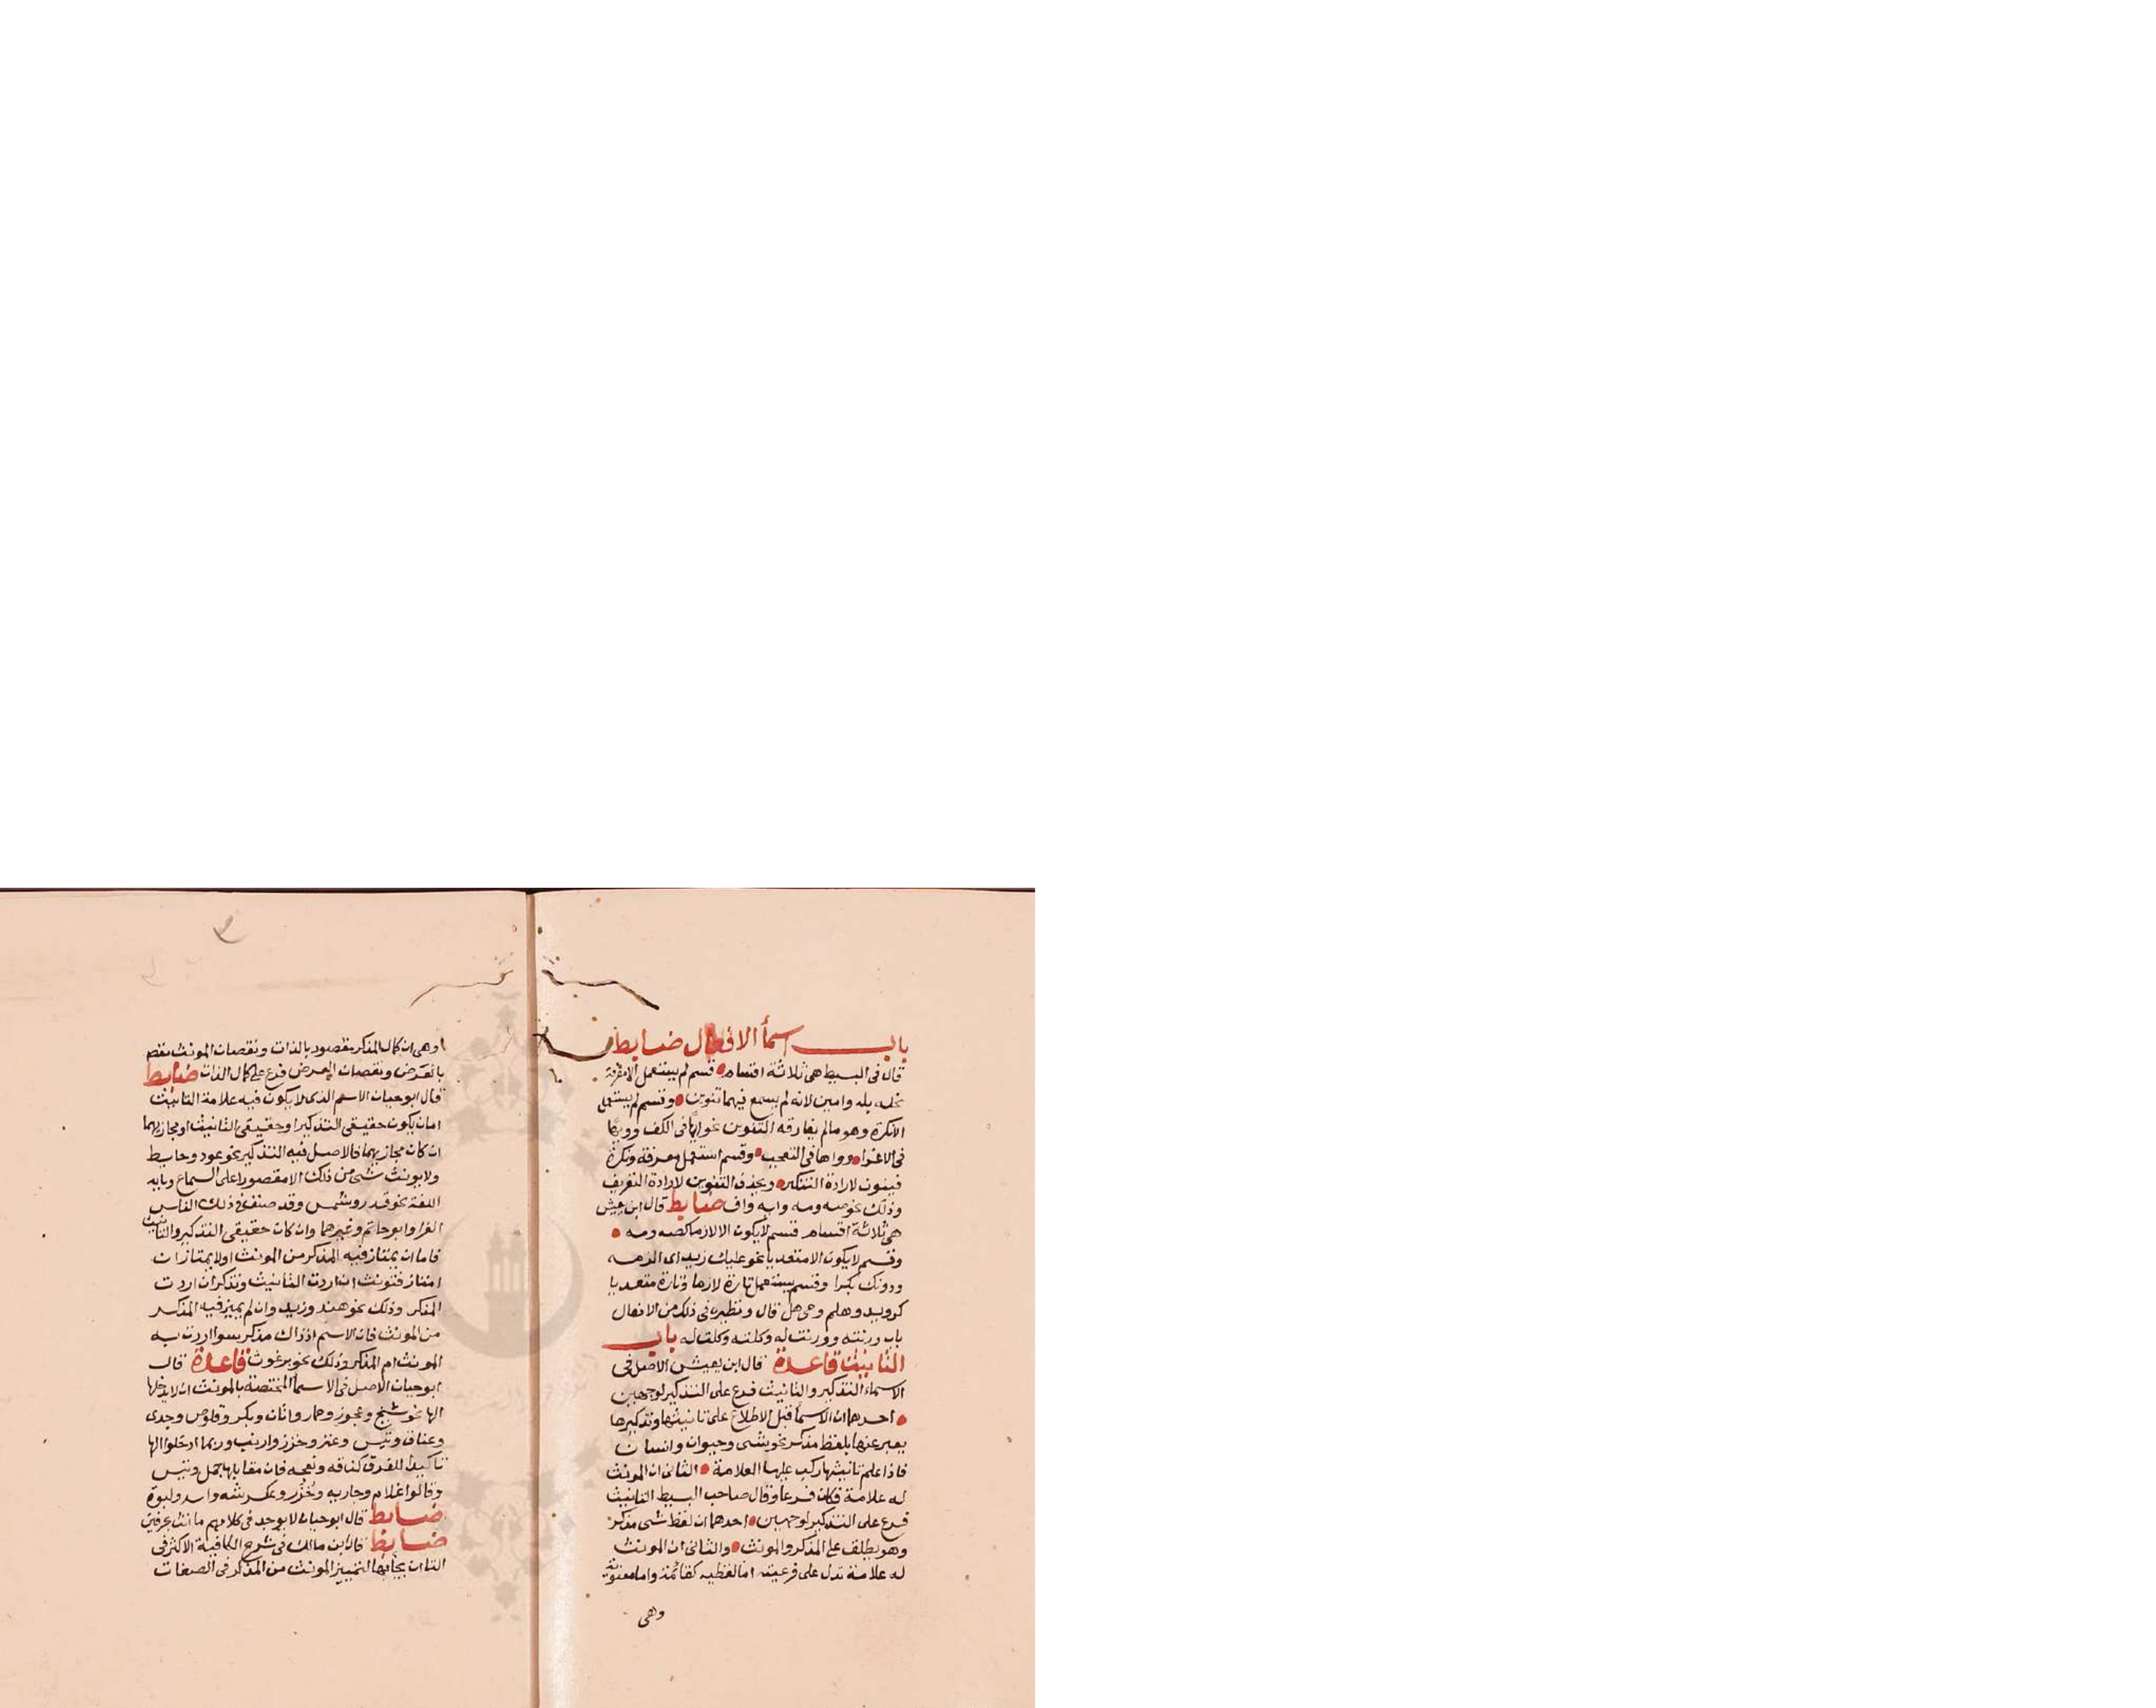 باب اسمأ الافعال ضابط
قال فى البسيط هى ثلاثة اقسام قسم لم يستعمل الا معرفة
نحو بله وامين لانه لم يسمع فيهما تنوين وقسم لم يستعمل
الا نكرة وهو مالم يفارقه التنوين نحو ايها فى الكف وويها
فى الاغرا وواها فى التعجب وقسم استعمل معرفة ونكرة
فينون لارادة التنكير ويحذف التنوين لارادة التعريف
وذلك نحو صه ومه وايه واف ضابط قال ابن يعيش
هى ثلاثة اقسام قسم لايكون الا لازما كصه ومه
وقسم لايكون الا متعديا نحو عليك زيدا اى الزمه
ودونك بكرا وقسم يستعمل تارة لازما وتارة متعديا
كرويد وهلم وحى هل قال ونظيره فى ذلك من الافعال
باب وزنته ووزنت له وكلته وكلت له باب
التانيث قاعدة قال ابن يعيش الاصل فى
الاسماء التذكير والتانيث فرع على التذكير لوجهين
احدهما ان الاسمأ قبل الاطلاع على تانيثها وتذكيرها
يعبر عنها بلفظ مذكر نحو شى وحيوان وانسان
فاذا علم تانيثها ركب عليها العلامة الثانى ان المونث
له علامة فكان فرعا وقال صاحب البسيط التانيث
فرع على التذكير لوجهين احدهما ان لفظ شى مذكر
وهو يطلق على المذكر والمونث والثانى ان المونث
له علامة تدل على فرعيته اما لفظيه كقائمة واما معنوية
وهى
اوهى ان كمال المذكر مقصود بالذات ونقصان المونث مقصو
بالعرض ونقصان العرض فرع على كمال الذات ضابط
قال ابو حيان الاسم الذى لا يكون فيه علامة التانيث
اما ان يكون حقيقى التذكير او حقيقى التانيث او مجازيهما
ان كان مجازيهما فالاصل فيه التذكير نحو عود وحايط
ولا يونث شى من ذلك الا مقصورا على السماع وبابه
اللغة نحو قدر وشمس وقد صنف فى ذلك الناس
الفرا وابو حاتم وغيرهما وان كان حقيقى التذكير والتانيث
فاما ان يمتاز فيه المذكر من المونث اولا يمتاز ان
امتاز فتونث ان اردت التانيث وتذكر ان اردت
المذكر وذلك نحو هند وزيد وان لم يميز فيه المذكر
من المونث فان الاسم اذ ذاك مذكر سوا اردت به
المونث ام المذكر وذلك نحو برغوث قاعدة قال
ابو حيان الاصل فى الاسما المختصة بالمونث ان لا يدخلها
الها نحو شيخ وعجوز وحمار واتان وبكر وقلوص وجدى
وعناق وتيس وعنز وخزز وارنب وربما ادخلوا الها
تاكيدا للفرق كناقه ونعجه فان مقابلها جمل وتيس
وقالوا غلام وجاريه وخزز وعكرشه واسد ولبوة
ضابط قال ابو حيان لا يوجد فى كلامهم ما انث بحرفين
ضابط قال ابن مالك فى شرح الكافية الاكثر فى
التا ان يجأ بها لتمييز المونث من المذكر فى الصفات